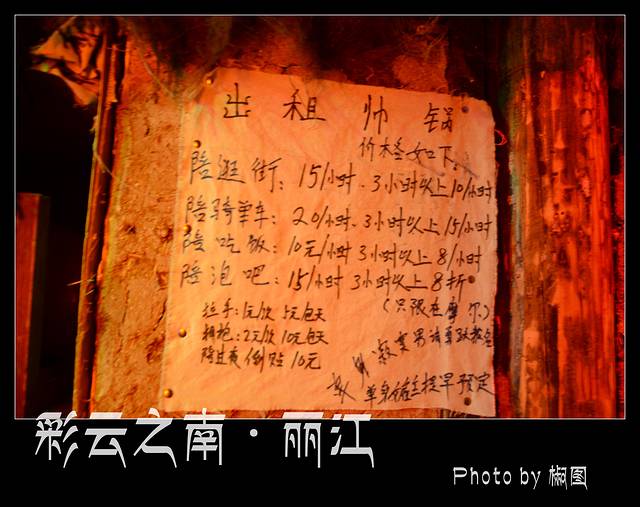 出租帅锅
价格如下:
陪逛街: 15/小时、3小时以上10/小时
陪骑单车: 20/小时、3小时以上15/小时
陪吃饭: 10元/小时 3小时以上 8/小时
陪泡吧: 15/小时 3小时以上8折
拉手:1元/次 5元包天
(只限在摩尔)
拥抱:2元/次 10元包天
寂寞男请
陪过夜 倒贴10元
单身 提早预定
彩云之南·丽江
Photo by 椒图